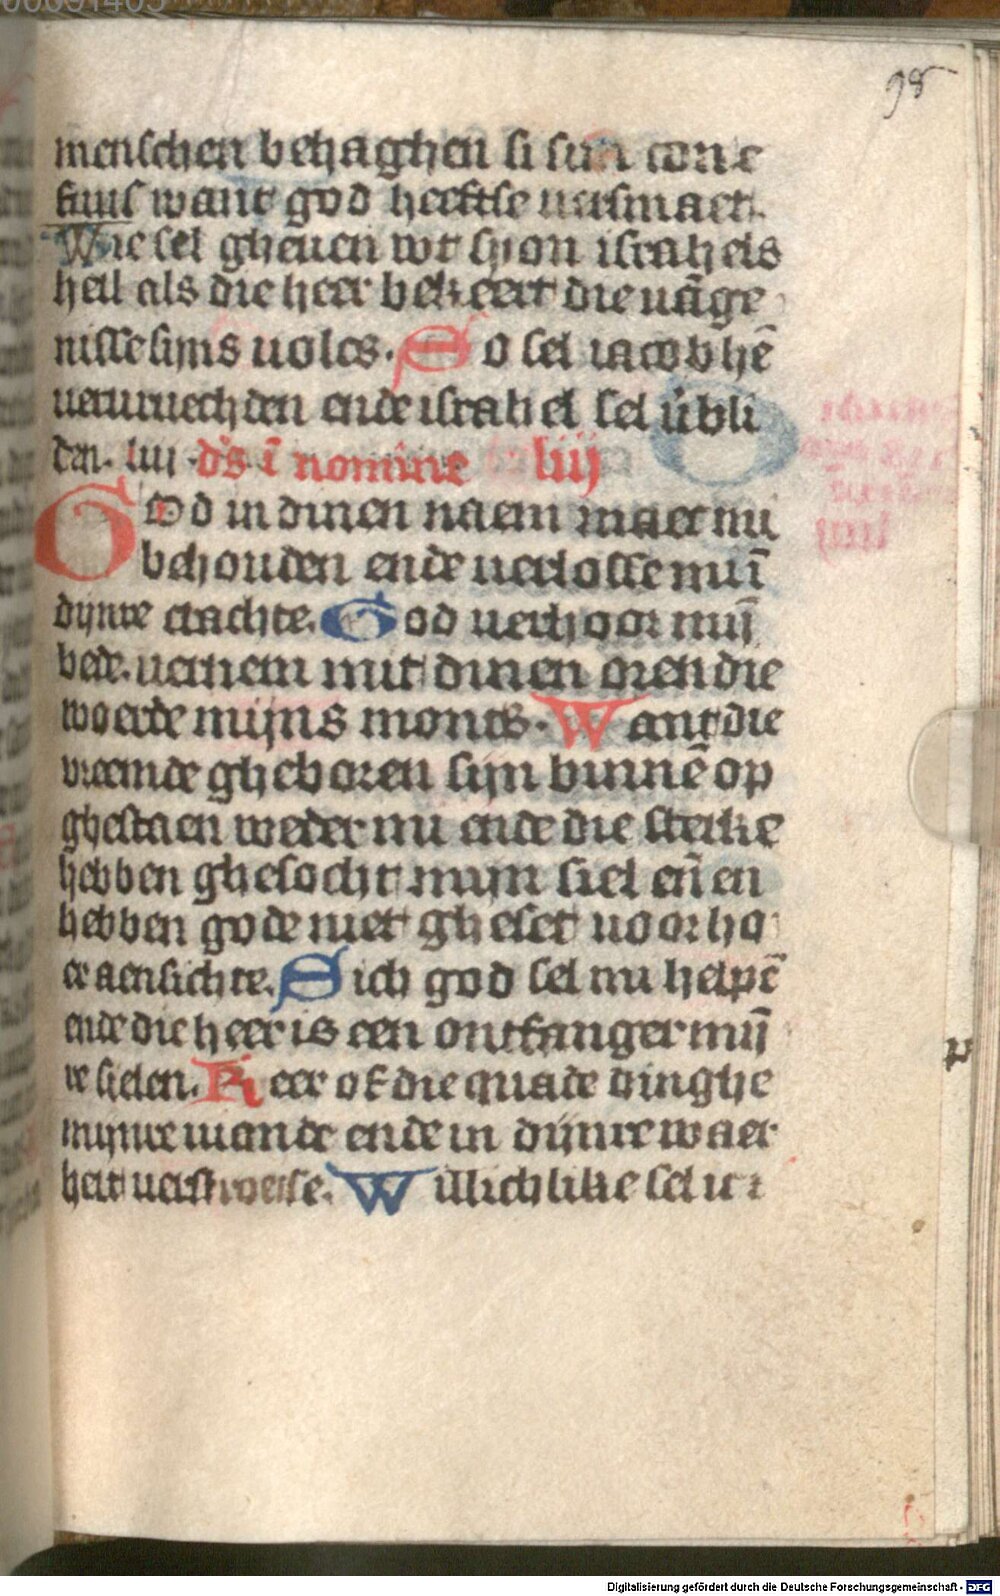 98
menschen behaghen si sijn con e
fuus want god heeftse uersmaet.
Wie sel gheuen wt syon israhels
heil als die heer bekeert die uāge
nisse sijns uolcs. So sel iacob hē
ueruruechden ende israhel sel ūbli
den. liii ds ī nomine liij
God in dinen naem maect mi
behouden ende uerlosse mi ī
dijnre crachte. God uerhoor mijn
bede. uernem mit dinen oren die
woerde mijns monts. Want die
vreemde gheboren sijn binnē op
ghestaen weder mi ende die sterke
hebben ghesocht mijn siel eñ en
hebben gode niet gheset uoor ho
er aensichte. Sich god sel mi helpē
ende die heer is een ontfanger mijn
re sielen. Keer of die quade dinghe
mijnre uiande ende in dijnre waer
heit uerstroeise. Willichlike sel ic
Digitalisierung gefördert durch die Deutsche Forschungsgemeinschaft - DFG